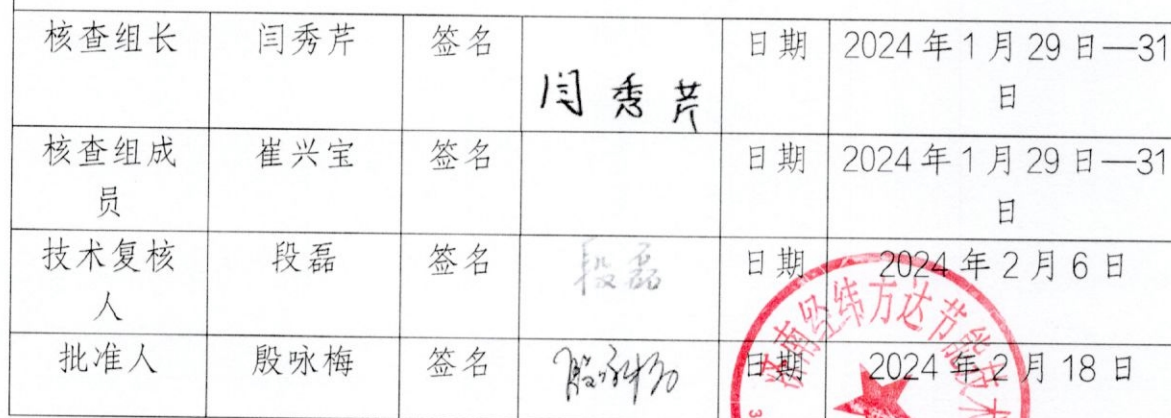 核查组长 闫秀芹 签名 闫秀芹 日期 2024年1月29日—31
日
核查组成 崔兴宝 签名 日期 2024年1月29日—31
员 日
技术复核 段磊 签名 段磊 日期 2024年2月6日
人
批准人 殷咏梅 签名 殷咏梅 日期 2024年2月18日
济南经纬方达节能技术
3